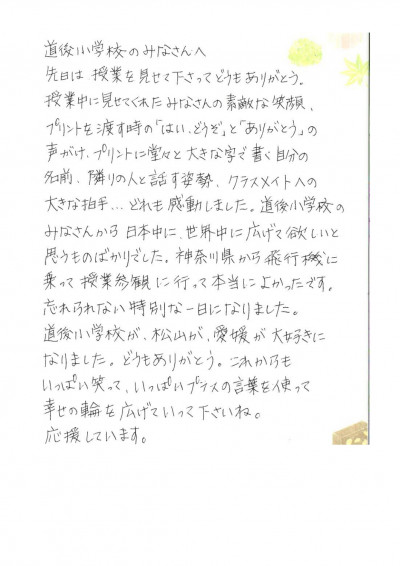 道後小学校のみなさんへ
先日は 授業を見せて下さってどうもありがとう。
授業中に見せてくれたみなさんの素敵な笑顔、
プリントを渡す時の「はい、どうぞ」と「ありがとう」の
声がけ、プリントに堂々と大きな字で書く自分の
名前、隣りの人と話す姿勢、クラスメイトへの
大きな拍手…どれも感動しました。道後小学校の
みなさんから 日本中に、世界中に広げて欲しいと
思うものばかりでした。神奈川県から飛行機に
乗って 授業参観に行って本当によかったです。
忘れられない特別な一日になりました。
道後小学校が、松山が、愛媛が大好きに
なりました。どうもありがとう。これからも
いっぱい笑って、いっぱいプラスの言葉を使って
幸せの輪を広げていって下さいね。
応援しています。